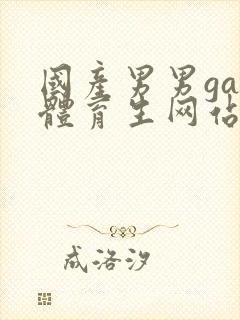 國産男男ga
體育生网佔
成洛汐